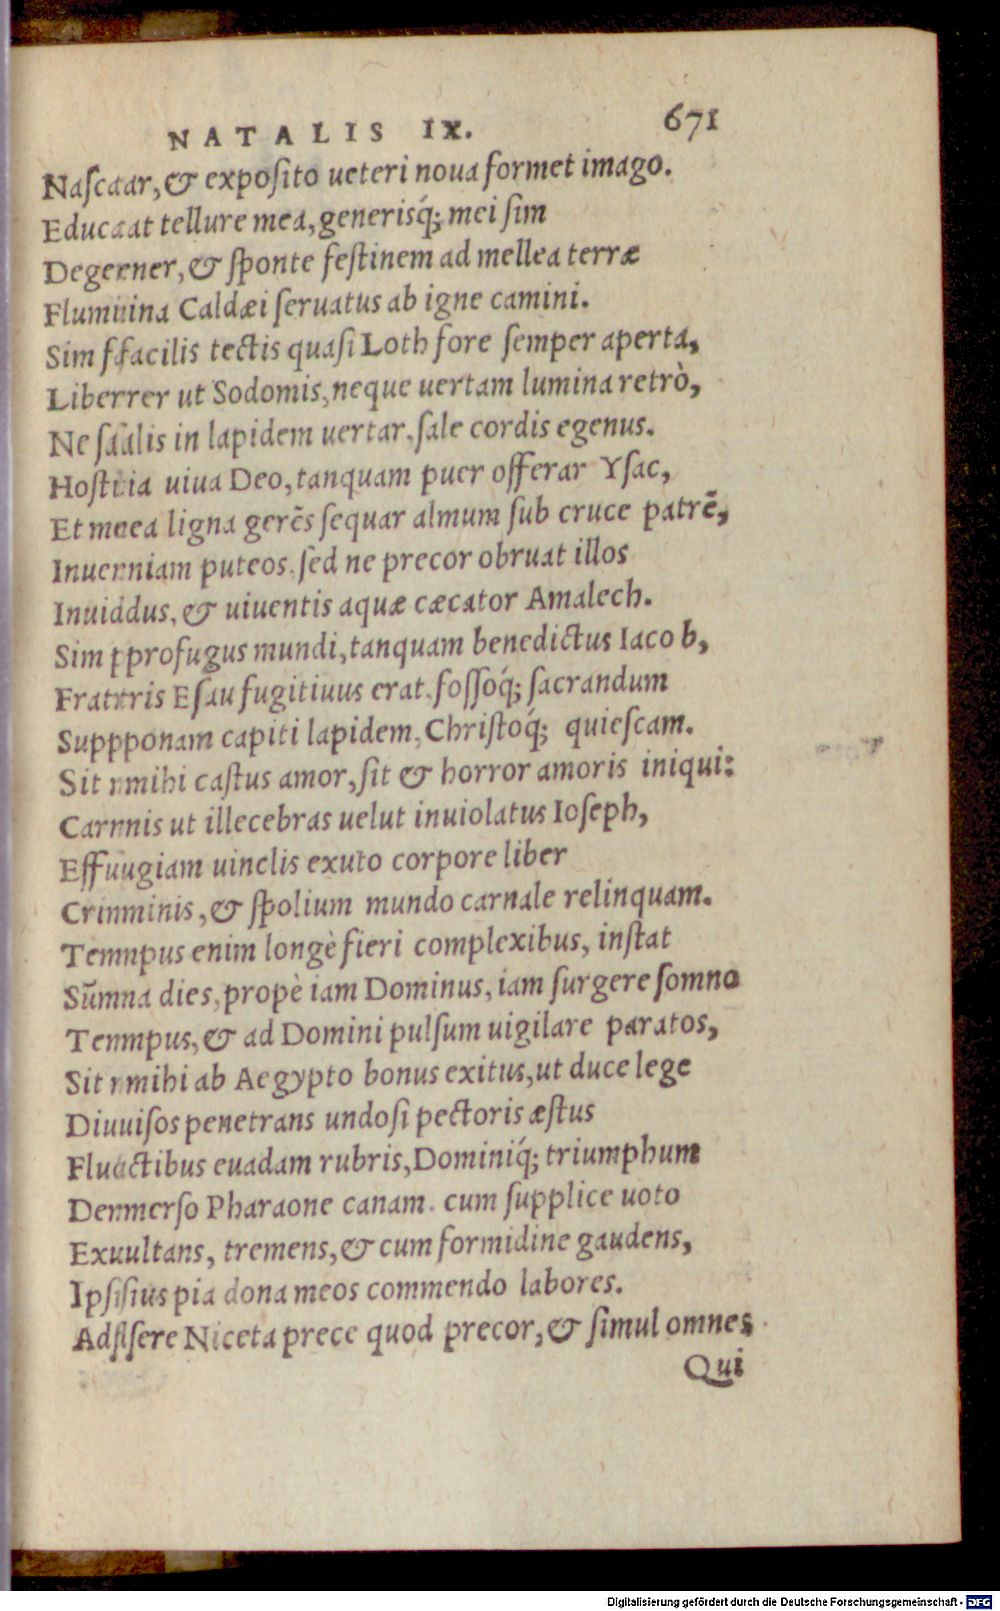 NATALIS IX. 671
Naſcaar, & expoſito ueteri noua formet imago.
Educaat tellure mea, generisq́; mei ſim
Degerner, & ſponte feſtinem ad mellea terræ
Flumiina Caldæi ſeruatus ab igne camini.
Sim ffacilis tectis quaſi Loth fore ſemper aperta,
Liberrer ut Sodomis, neque uertam lumina retrò,
Ne ſaalis in lapidem uertar, ſale cordis egenus.
Hoſtiia uiua Deo, tanquam puer offerar Yſac,
Et meea ligna gerēs ſequar almum ſub cruce patrē,
Inuenniam puteos, ſed ne precor obruat illos
Inuiddus, & uiuentis aquæ cæcator Amalech.
Sim pprofugus mundi, tanquam benedictus Iacob,
Frattris Eſau fugitiuus erat, foſſoq́; ſacrandum
Suppponam capiti lapidem, Chriſtoq́; quieſcam.
Sit mmihi caſtus amor, ſit & horror amoris iniqui:
Carnnis ut illecebras uelut inuiolatus Ioſeph,
Effuugiam uinclis exuto corpore liber
Crimminis, & ſpolium mundo carnale relinquam.
Temnpus enim longè fieri complexibus, inſtat
Sūmna dies, propè iam Dominus, iam ſurgere ſomno
Temmpus, & ad Domini pulſum uigilare paratos,
Sit mmihi ab Aegypto bonus exitus, ut duce lege
Diuuiſos penetrans undoſi pectoris æſtus
Fluuctibus euadam rubris, Dominiq́; triumphum
Demmerſo Pharaone canam. cum ſupplice uoto
Exuultans, tremens, & cum formidine gaudens,
Ipſiſius pia dona meos commendo labores.
Adſiſere Niceta prece quod precor, & ſimul omnes
Qui
Digitalisierung gefördert durch die Deutsche Forschungsgemeinschaft - DFG